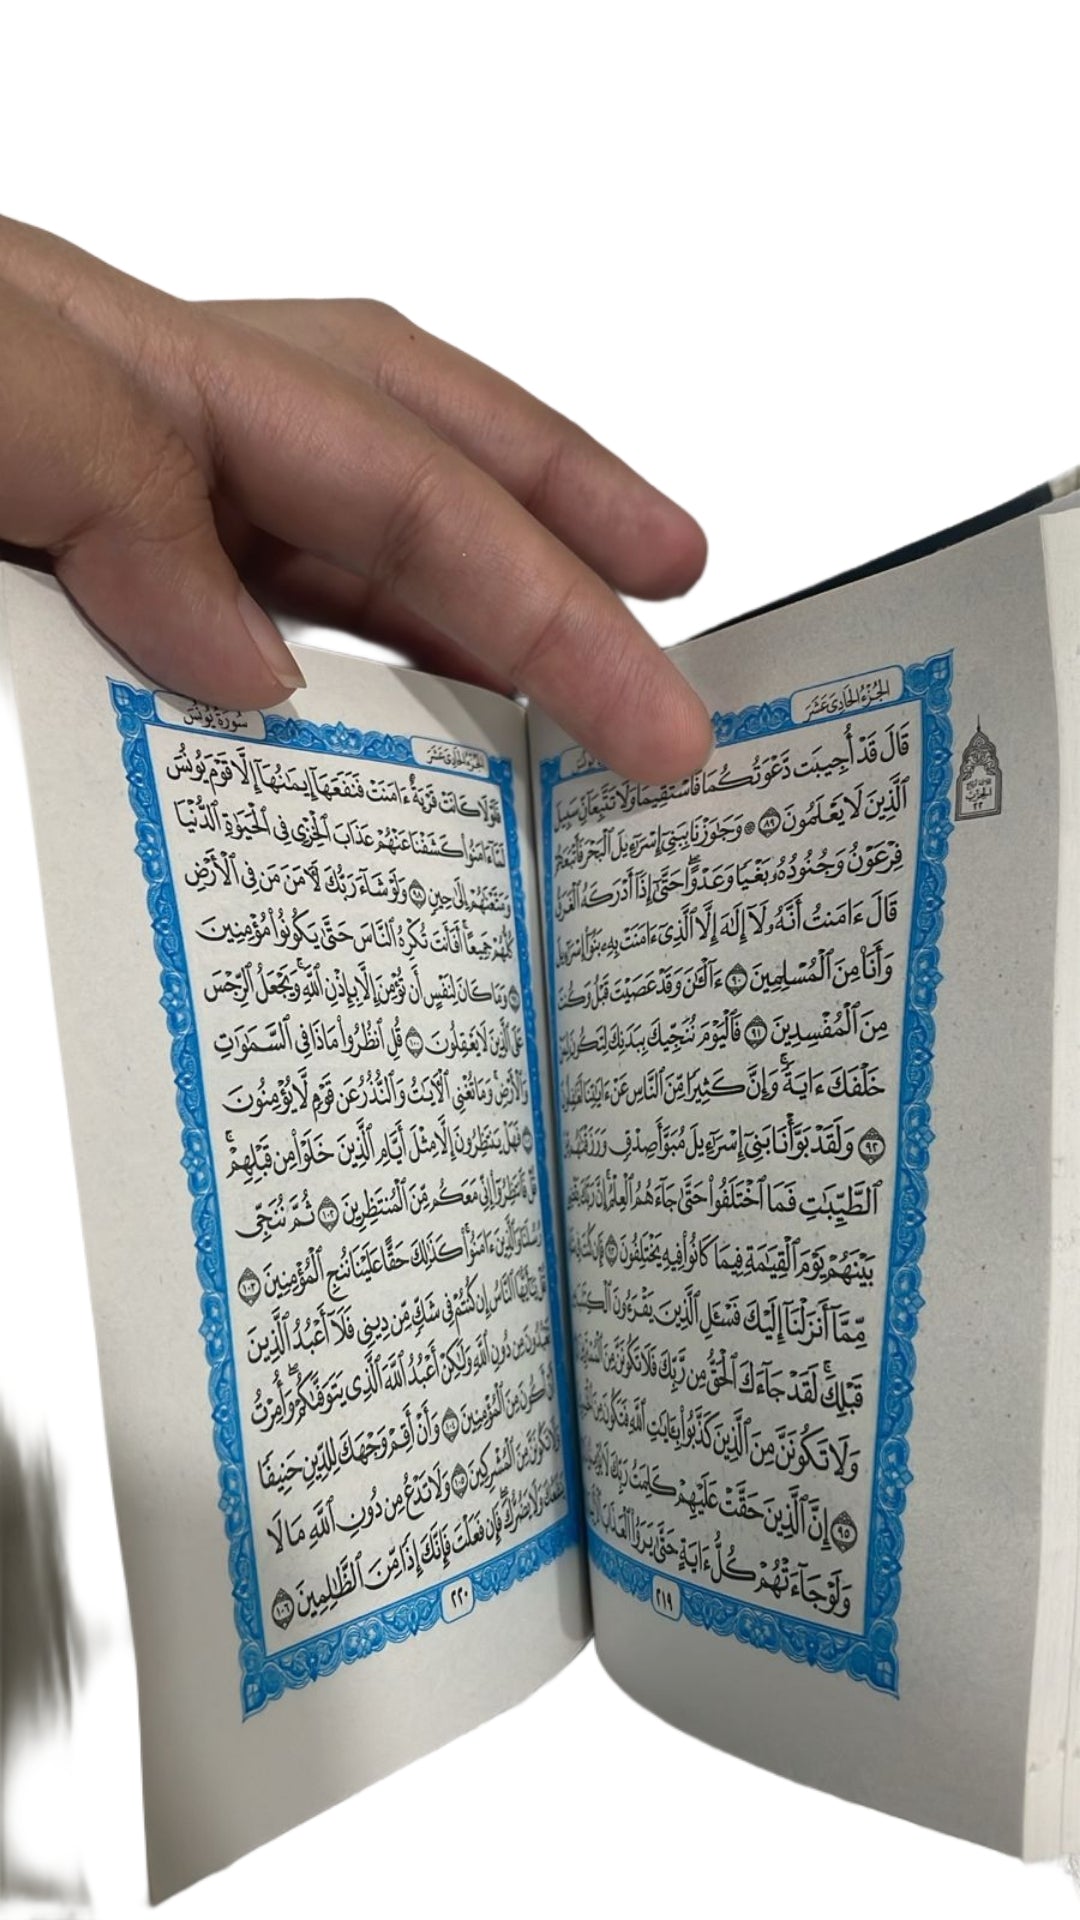 الجزء الحادي عشر
قَالَ قَدْ أُجِيبَت دَّعْوَتُكُمَا فَٱسْتَقِيمَا وَلَا تَتَّبِعَآنِّ سَبِيلَ
ٱلَّذِينَ لَا يَعْلَمُونَ ٨٩ ۞ وَجَٰوَزْنَا بِبَنِىٓ إِسْرَٰٓءِيلَ ٱلْبَحْرَ فَأَتْبَعَهُمْ
فِرْعَوْنُ وَجُنُودُهُۥ بَغْيًا وَعَدْوًا ۖ حَتَّىٰٓ إِذَآ أَدْرَكَهُ ٱلْغَرَقُ
قَالَ ءَامَنتُ أَنَّهُۥ لَآ إِلَٰهَ إِلَّا ٱلَّذِىٓ ءَامَنَتْ بِهِۦ بَنُوٓا۟ إِسْرَٰٓءِيلَ
وَأَنَا۠ مِنَ ٱلْمُسْلِمِينَ ٩٠ ءَآلْـَٰٔنَ وَقَدْ عَصَيْتَ قَبْلُ وَكُنتَ
مِنَ ٱلْمُفْسِدِينَ ٩١ فَٱلْيَوْمَ نُنَجِّيكَ بِبَدَنِكَ لِتَكُونَ لِمَنْ
خَلْفَكَ ءَايَةً ۚ وَإِنَّ كَثِيرًا مِّنَ ٱلنَّاسِ عَنْ ءَايَٰتِنَا لَغَٰفِلُونَ
٩٢ وَلَقَدْ بَوَّأْنَا بَنِىٓ إِسْرَٰٓءِيلَ مُبَوَّأَ صِدْقٍ وَرَزَقْنَٰهُم مِّنَ
ٱلطَّيِّبَٰتِ فَمَا ٱخْتَلَفُوا۟ حَتَّىٰ جَآءَهُمُ ٱلْعِلْمُ ۚ إِنَّ رَبَّكَ يَقْضِى
بَيْنَهُمْ يَوْمَ ٱلْقِيَٰمَةِ فِيمَا كَانُوا۟ فِيهِ يَخْتَلِفُونَ ٩٣ فَإِن كُنتَ فِى
مِّمَّآ أَنزَلْنَآ إِلَيْكَ فَسْـَٔلِ ٱلَّذِينَ يَقْرَءُونَ ٱلْكِتَٰبَ
قَبْلِكَ ۚ لَقَدْ جَآءَكَ ٱلْحَقُّ مِن رَّبِّكَ فَلَا تَكُونَنَّ مِنَ
وَلَا تَكُونَنَّ مِنَ ٱلَّذِينَ كَذَّبُوا۟ بِـَٔايَٰتِ ٱللَّهِ فَتَكُونَ مِنَ
٩٥ إِنَّ ٱلَّذِينَ حَقَّتْ عَلَيْهِمْ كَلِمَتُ رَبِّكَ لَا
وَلَوْ جَآءَتْهُمْ كُلُّ ءَايَةٍ حَتَّىٰ يَرَوُا۟ ٱلْعَذَابَ
٢١٩
الحزب
٢٢
سورة يونس
الجزء الحادي عشر
فَلَوْلَا كَانَتْ قَرْيَةٌ ءَامَنَتْ فَنَفَعَهَآ إِيمَٰنُهَآ إِلَّا قَوْمَ يُونُسَ
لَمَّآ ءَامَنُوا۟ كَشَفْنَا عَنْهُمْ عَذَابَ ٱلْخِزْىِ فِى ٱلْحَيَوٰةِ ٱلدُّنْيَا
وَمَتَّعْنَٰهُمْ إِلَىٰ حِينٍ ٩٨ وَلَوْ شَآءَ رَبُّكَ لَـَٔامَنَ مَن فِى ٱلْأَرْضِ
كُلُّهُمْ جَمِيعًا ۚ أَفَأَنتَ تُكْرِهُ ٱلنَّاسَ حَتَّىٰ يَكُونُوا۟ مُؤْمِنِينَ
٩٩ وَمَا كَانَ لِنَفْسٍ أَن تُؤْمِنَ إِلَّا بِإِذْنِ ٱللَّهِ ۚ وَيَجْعَلُ ٱلرِّجْسَ
عَلَى ٱلَّذِينَ لَا يَعْقِلُونَ ١٠٠ قُلِ ٱنظُرُوا۟ مَاذَا فِى ٱلسَّمَٰوَٰتِ
وَٱلْأَرْضِ ۚ وَمَا تُغْنِى ٱلْـَٔايَٰتُ وَٱلنُّذُرُ عَن قَوْمٍ لَّا يُؤْمِنُونَ
١٠١ فَهَلْ يَنتَظِرُونَ إِلَّا مِثْلَ أَيَّامِ ٱلَّذِينَ خَلَوْا۟ مِن قَبْلِهِمْ ۚ
قُلْ فَٱنتَظِرُوٓا۟ إِنِّى مَعَكُم مِّنَ ٱلْمُنتَظِرِينَ ١٠٢ ثُمَّ نُنَجِّى
رُسُلَنَا وَٱلَّذِينَ ءَامَنُوا۟ ۚ كَذَٰلِكَ حَقًّا عَلَيْنَا نُنجِ ٱلْمُؤْمِنِينَ ١٠٣
قُلْ يَٰٓأَيُّهَا ٱلنَّاسُ إِن كُنتُمْ فِى شَكٍّ مِّن دِينِى فَلَآ أَعْبُدُ ٱلَّذِينَ
تَعْبُدُونَ مِن دُونِ ٱللَّهِ وَلَٰكِنْ أَعْبُدُ ٱللَّهَ ٱلَّذِى يَتَوَفَّىٰكُمْ ۖ وَأُمِرْتُ
أَنْ أَكُونَ مِنَ ٱلْمُؤْمِنِينَ ١٠٤ وَأَنْ أَقِمْ وَجْهَكَ لِلدِّينِ حَنِيفًا
وَلَا تَكُونَنَّ مِنَ ٱلْمُشْرِكِينَ ١٠٥ وَلَا تَدْعُ مِن دُونِ ٱللَّهِ مَا لَا
يَنفَعُكَ وَلَا يَضُرُّكَ ۖ فَإِن فَعَلْتَ فَإِنَّكَ إِذًا مِّنَ ٱلظَّٰلِمِينَ ١٠٦
٢٢٠